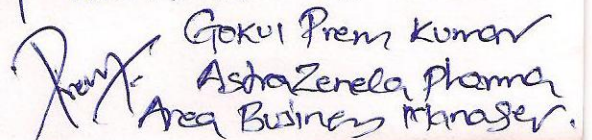 Gokul Prem Kumar
Prem AstraZeneca Pharma
Area Business Manager.